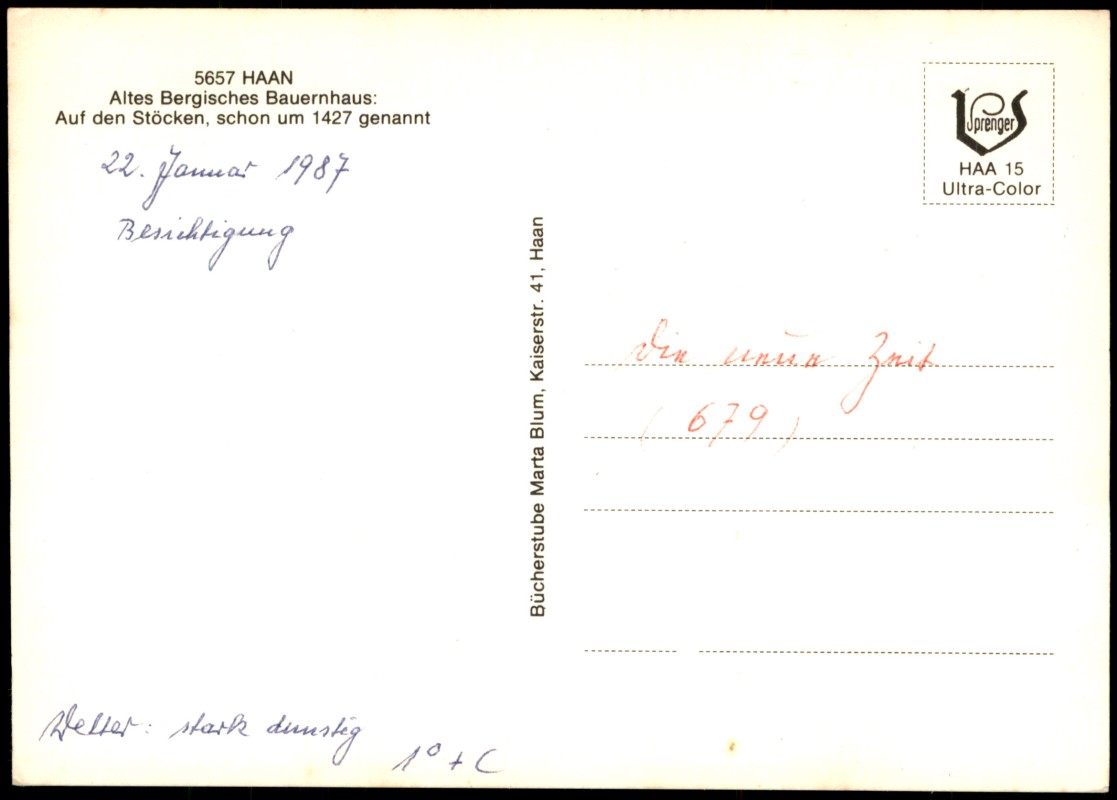 5657 HAAN
Altes Bergisches Bauernhaus:
Auf den Stöcken, schon um 1427 genannt
22. Januar 1987
Besichtigung
Wetter: stark dunstig
1° + C
Bücherstube Marta Blum, Kaiserstr. 41, Haan
Sprenger
HAA 15
Ultra-Color
Die neue Zeit
(679)